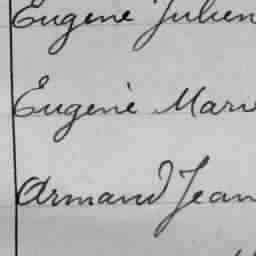 Eugène Julien
Eugène Marie
Armand Jean